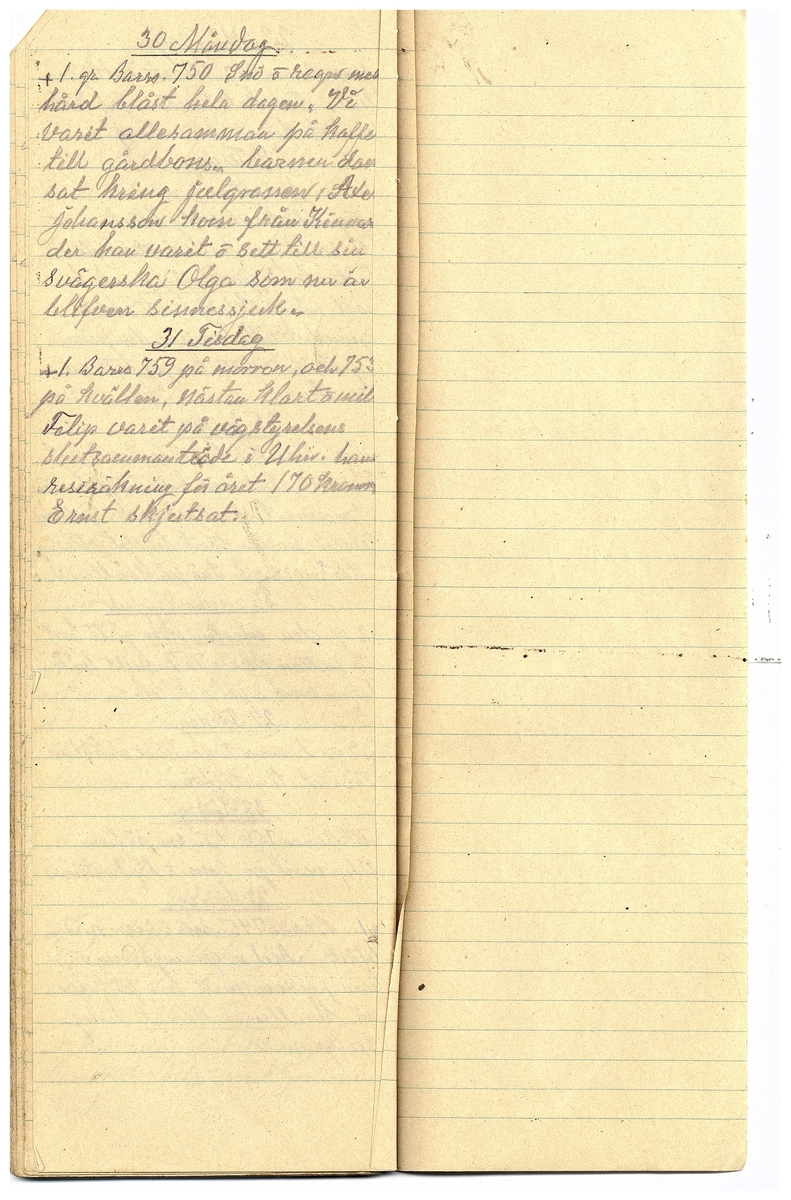 30 Måndag
+1. gr. Barrs. 750 Snö o rägn med
hård blåst hela dagen. Vi
varit allesamman på kaffe
till gårdbons, barnen dan
sat kring julgranen, Axe
Johansson kom från Kinnar
der han varit o sett till sin
svägerska Olga som nu är
blifven sinnessjuk.
31 Tisdag
+1. Barrs 759 på morron, och 753
på kvällen, nästan klart o mil
Filip varit på vägstyrelsens
slutsammanträde i Ulriv. hans
resräkning för året 170 kronor
Ernst skjutsat.